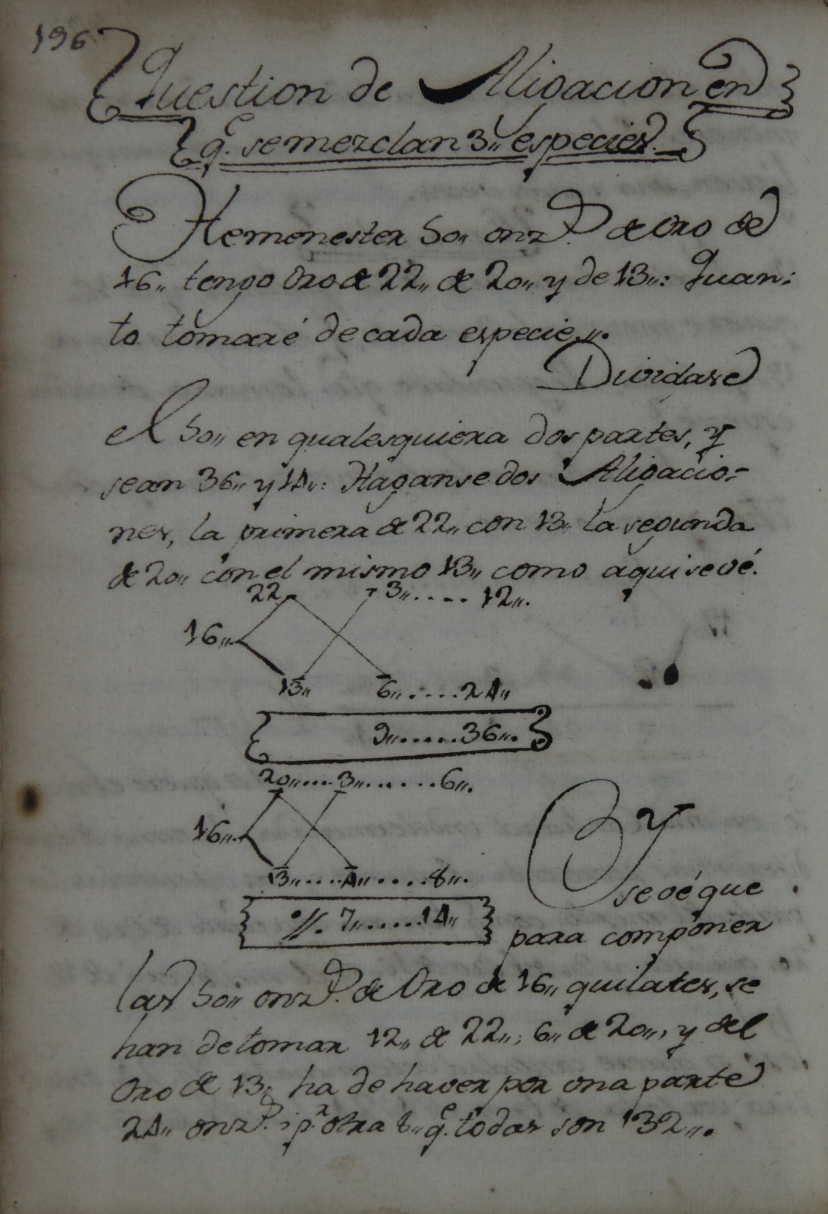 196
Question de Aligacion en
q.e se mezclan 3,, especies.
He menester 50,, onz.s de Oro de
16,, tengo Oro de 22,, de 20,, y de 13,,: Quan-
to tomaré de cada especie,,.
Dividase
el 50,, en qualesquiera dos partes, y
sean 36,, y 14,,: Haganse dos Aligacio-
nes, la primera de 22,, con 13,, la segunda
de 20,, con el mismo 13,, como aqui se vé.
22,, 3,,.... 12,,.
16,,
13,, 6,,.....24,,
9,,.....36,,.
20,,....3,,......6,,.
16,,
13,,....4,,.....8,,.
//. 7,,.....14,,
Y
se vé que
para componer
las 50,, onz.s de Oro de 16,, quilates, se
han de tomar 12,, de 22,,; 6,, de 20,,, y del
Oro de 13,, ha de haver por una parte
24,, onz.s i p.r otra 8,, q.e todas son 32,,.